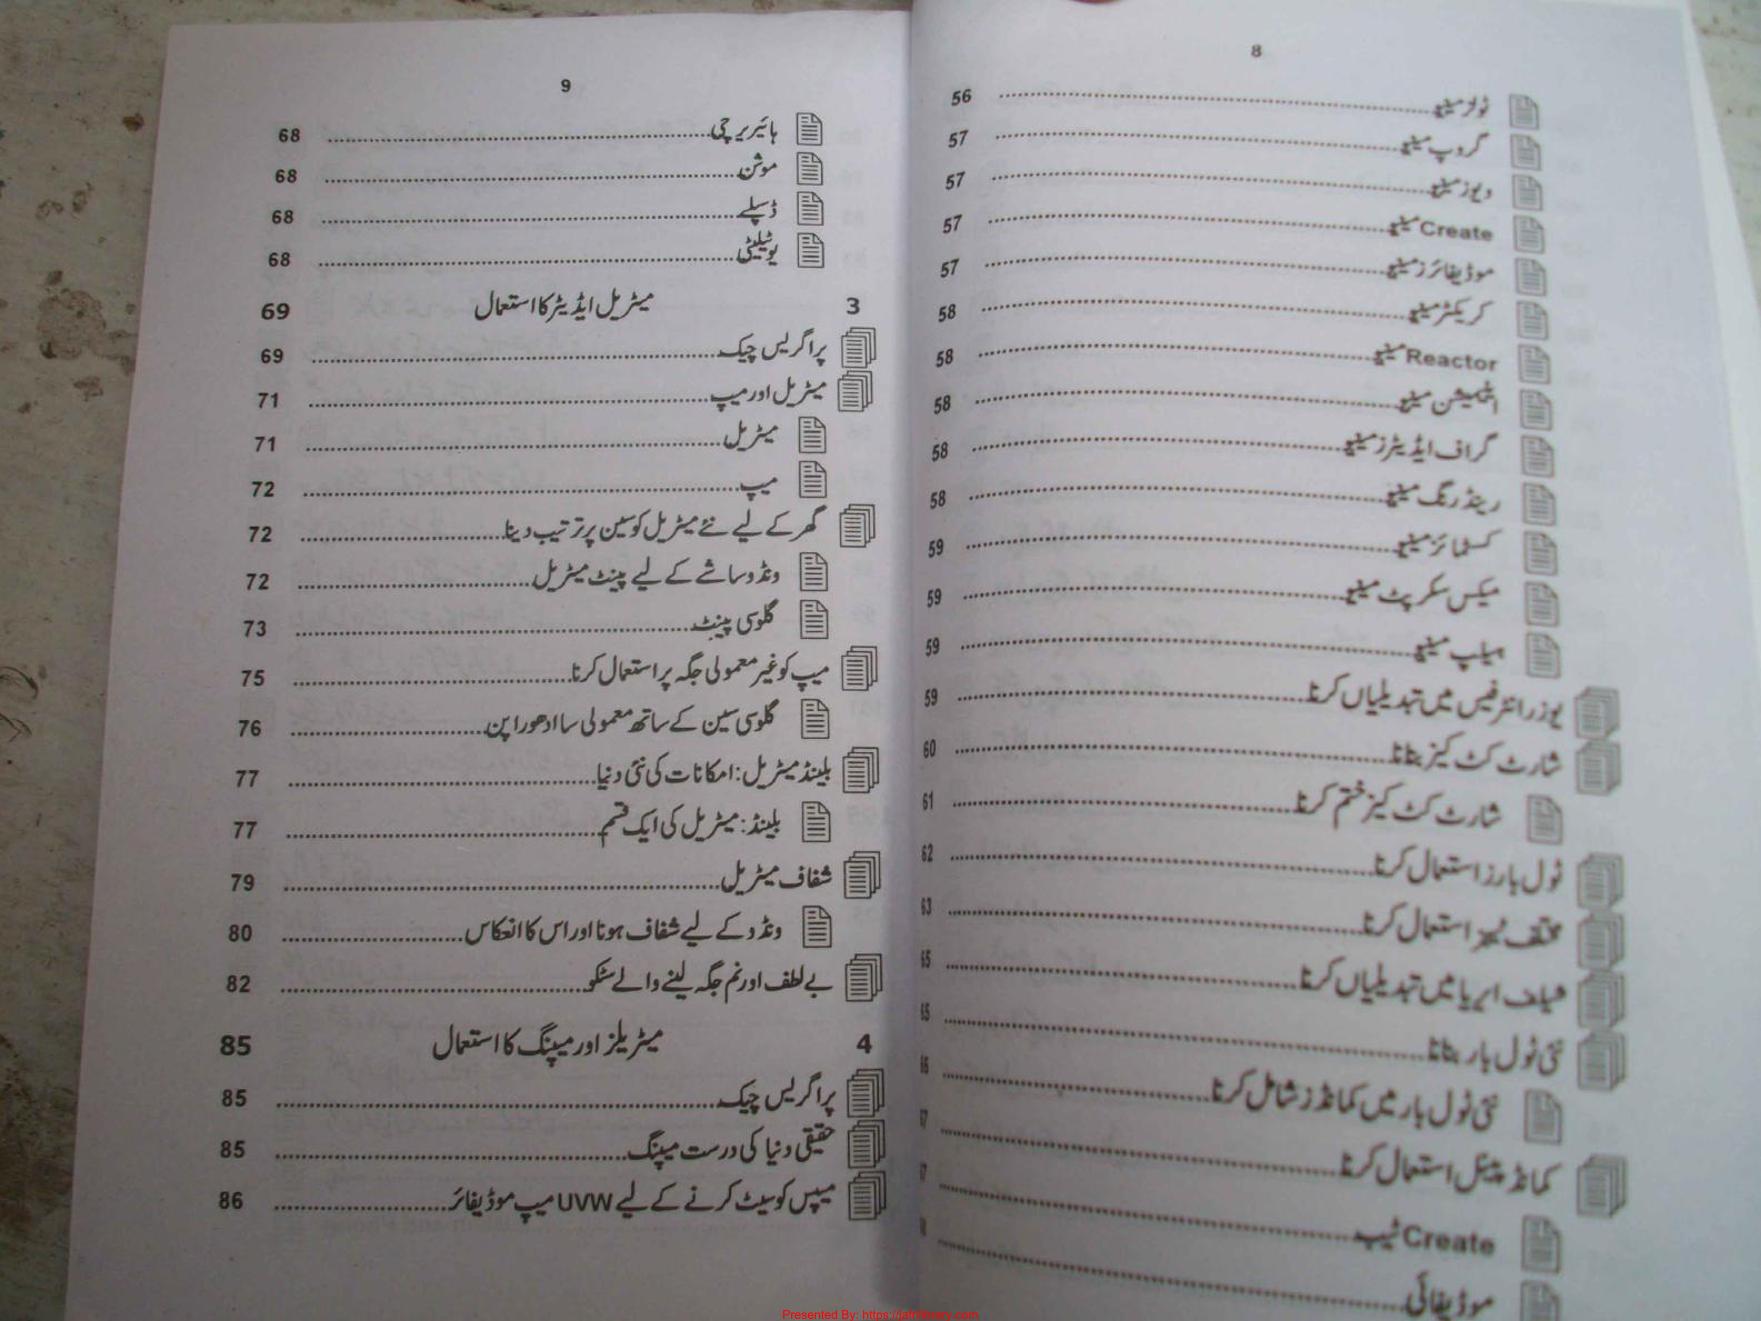 8
ٹولز مینیو 56
گروپ مینیو 57
ویوز مینیو 57
Create مینیو 57
موڈیفائرز مینیو 57
کریکٹر مینیو 58
Reactor مینیو 58
اینیمیشن مینیو 58
گراف ایڈیٹرز مینیو 58
رینڈرنگ مینیو 58
کسٹمائز مینیو 59
میکس سکرپٹ مینیو 59
ہیلپ مینیو 59
یوزر انٹرفیس میں تبدیلیاں کرنا 59
شارٹ کٹ کیز بنانا 60
شارٹ کٹ کیز ختم کرنا 61
ٹول بارز استعمال کرنا 62
مختلف ٹیبز استعمال کرنا 63
شیلف ایریا میں تبدیلیاں کرنا 65
نئی ٹول بار بنانا
نئی ٹول بار میں کمانڈز شامل کرنا
کمانڈ پینل استعمال کرنا
Create ٹیب
موڈیفائی
9
ہائیریرچی 68
موشن 68
ڈسپلے 68
یوٹیلیٹی 68
3 میٹریل ایڈیٹر کا استعمال 69
پراگریس چیک 69
میٹریل اور میپ 71
میٹریل 71
میپ 72
گھر کے لیے نئے میٹریل کو سین پر ترتیب دینا 72
ونڈو ساشے کے لیے پینٹ میٹریل 72
گلوسی پینٹ 73
میپ کو غیر معمولی جگہ پر استعمال کرنا 75
گلوسی سین کے ساتھ معمولی سا ادھورا پن 76
بلینڈ میٹریل: امکانات کی نئی دنیا 77
بلینڈ: میٹریل کی ایک قسم 77
شفاف میٹریل 79
ونڈو کے لیے شفاف ہونا اور اس کا انعکاس 80
بے لطف اور نم جگہ لینے والے سٹکو 82
4 میٹریلز اور میپنگ کا استعمال 85
پراگریس چیک 85
حقیقی دنیا کی درست میپنگ 85
میپس کو سیٹ کرنے کے لیے UVW میپ موڈیفائر 86